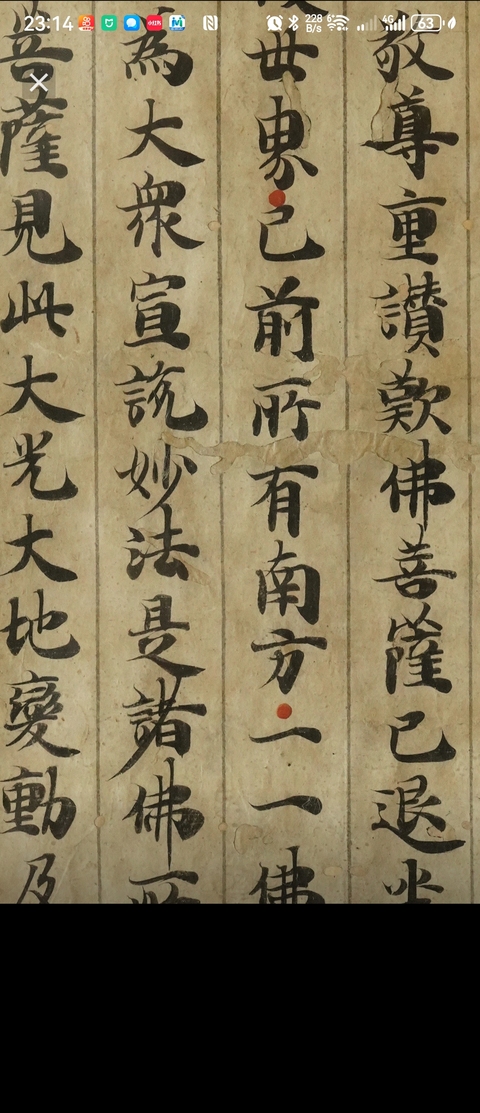 23:14 228 B/s 6 4G 63
敬尊重讚歎佛菩薩已退坐
世界已前所有南方一一佛
為大衆宣說妙法是諸佛所
菩薩見此大光大地變動及